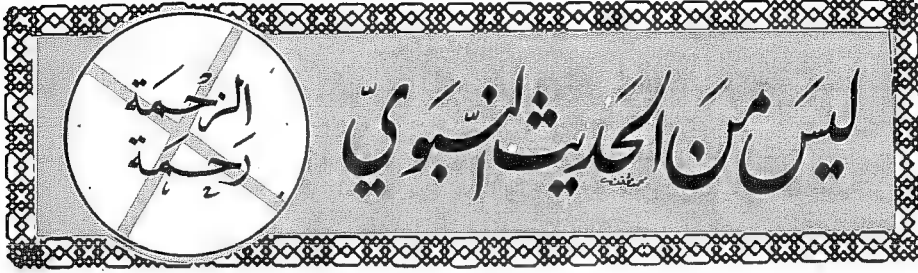 ليسَ منَ الحَديث النّبَويّ
الزحْمَة
رَحِمَة